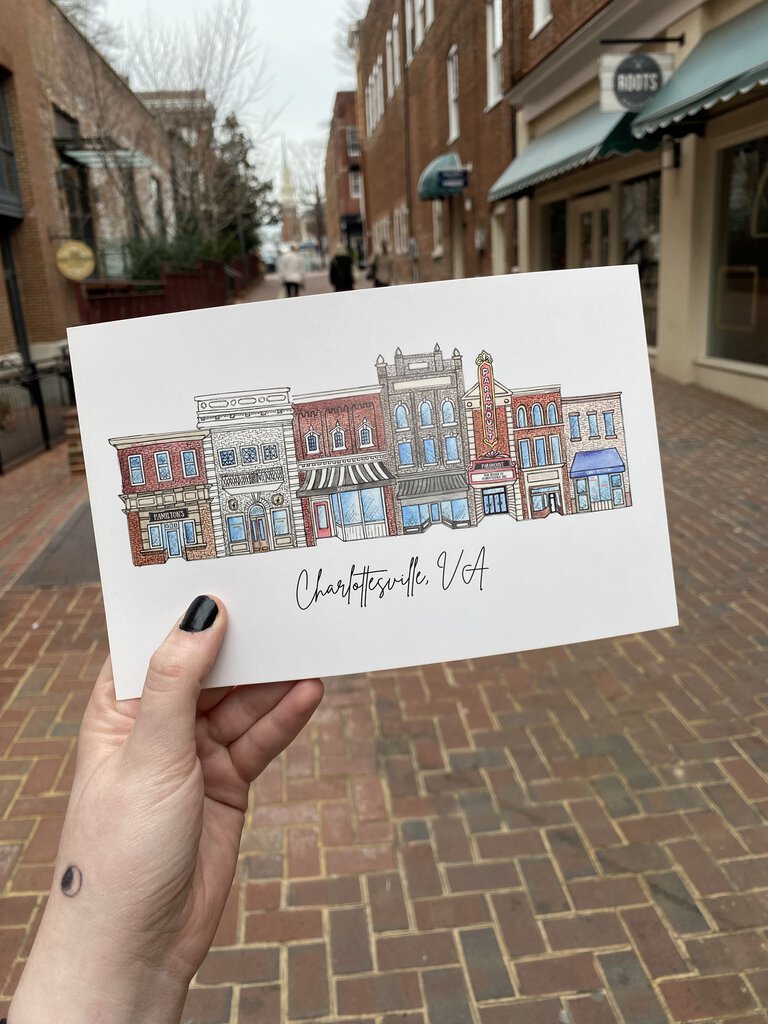 ROOTS
PARAMOUNT
PARAMOUNT
HAMILTON'S
Charlottesville, VA